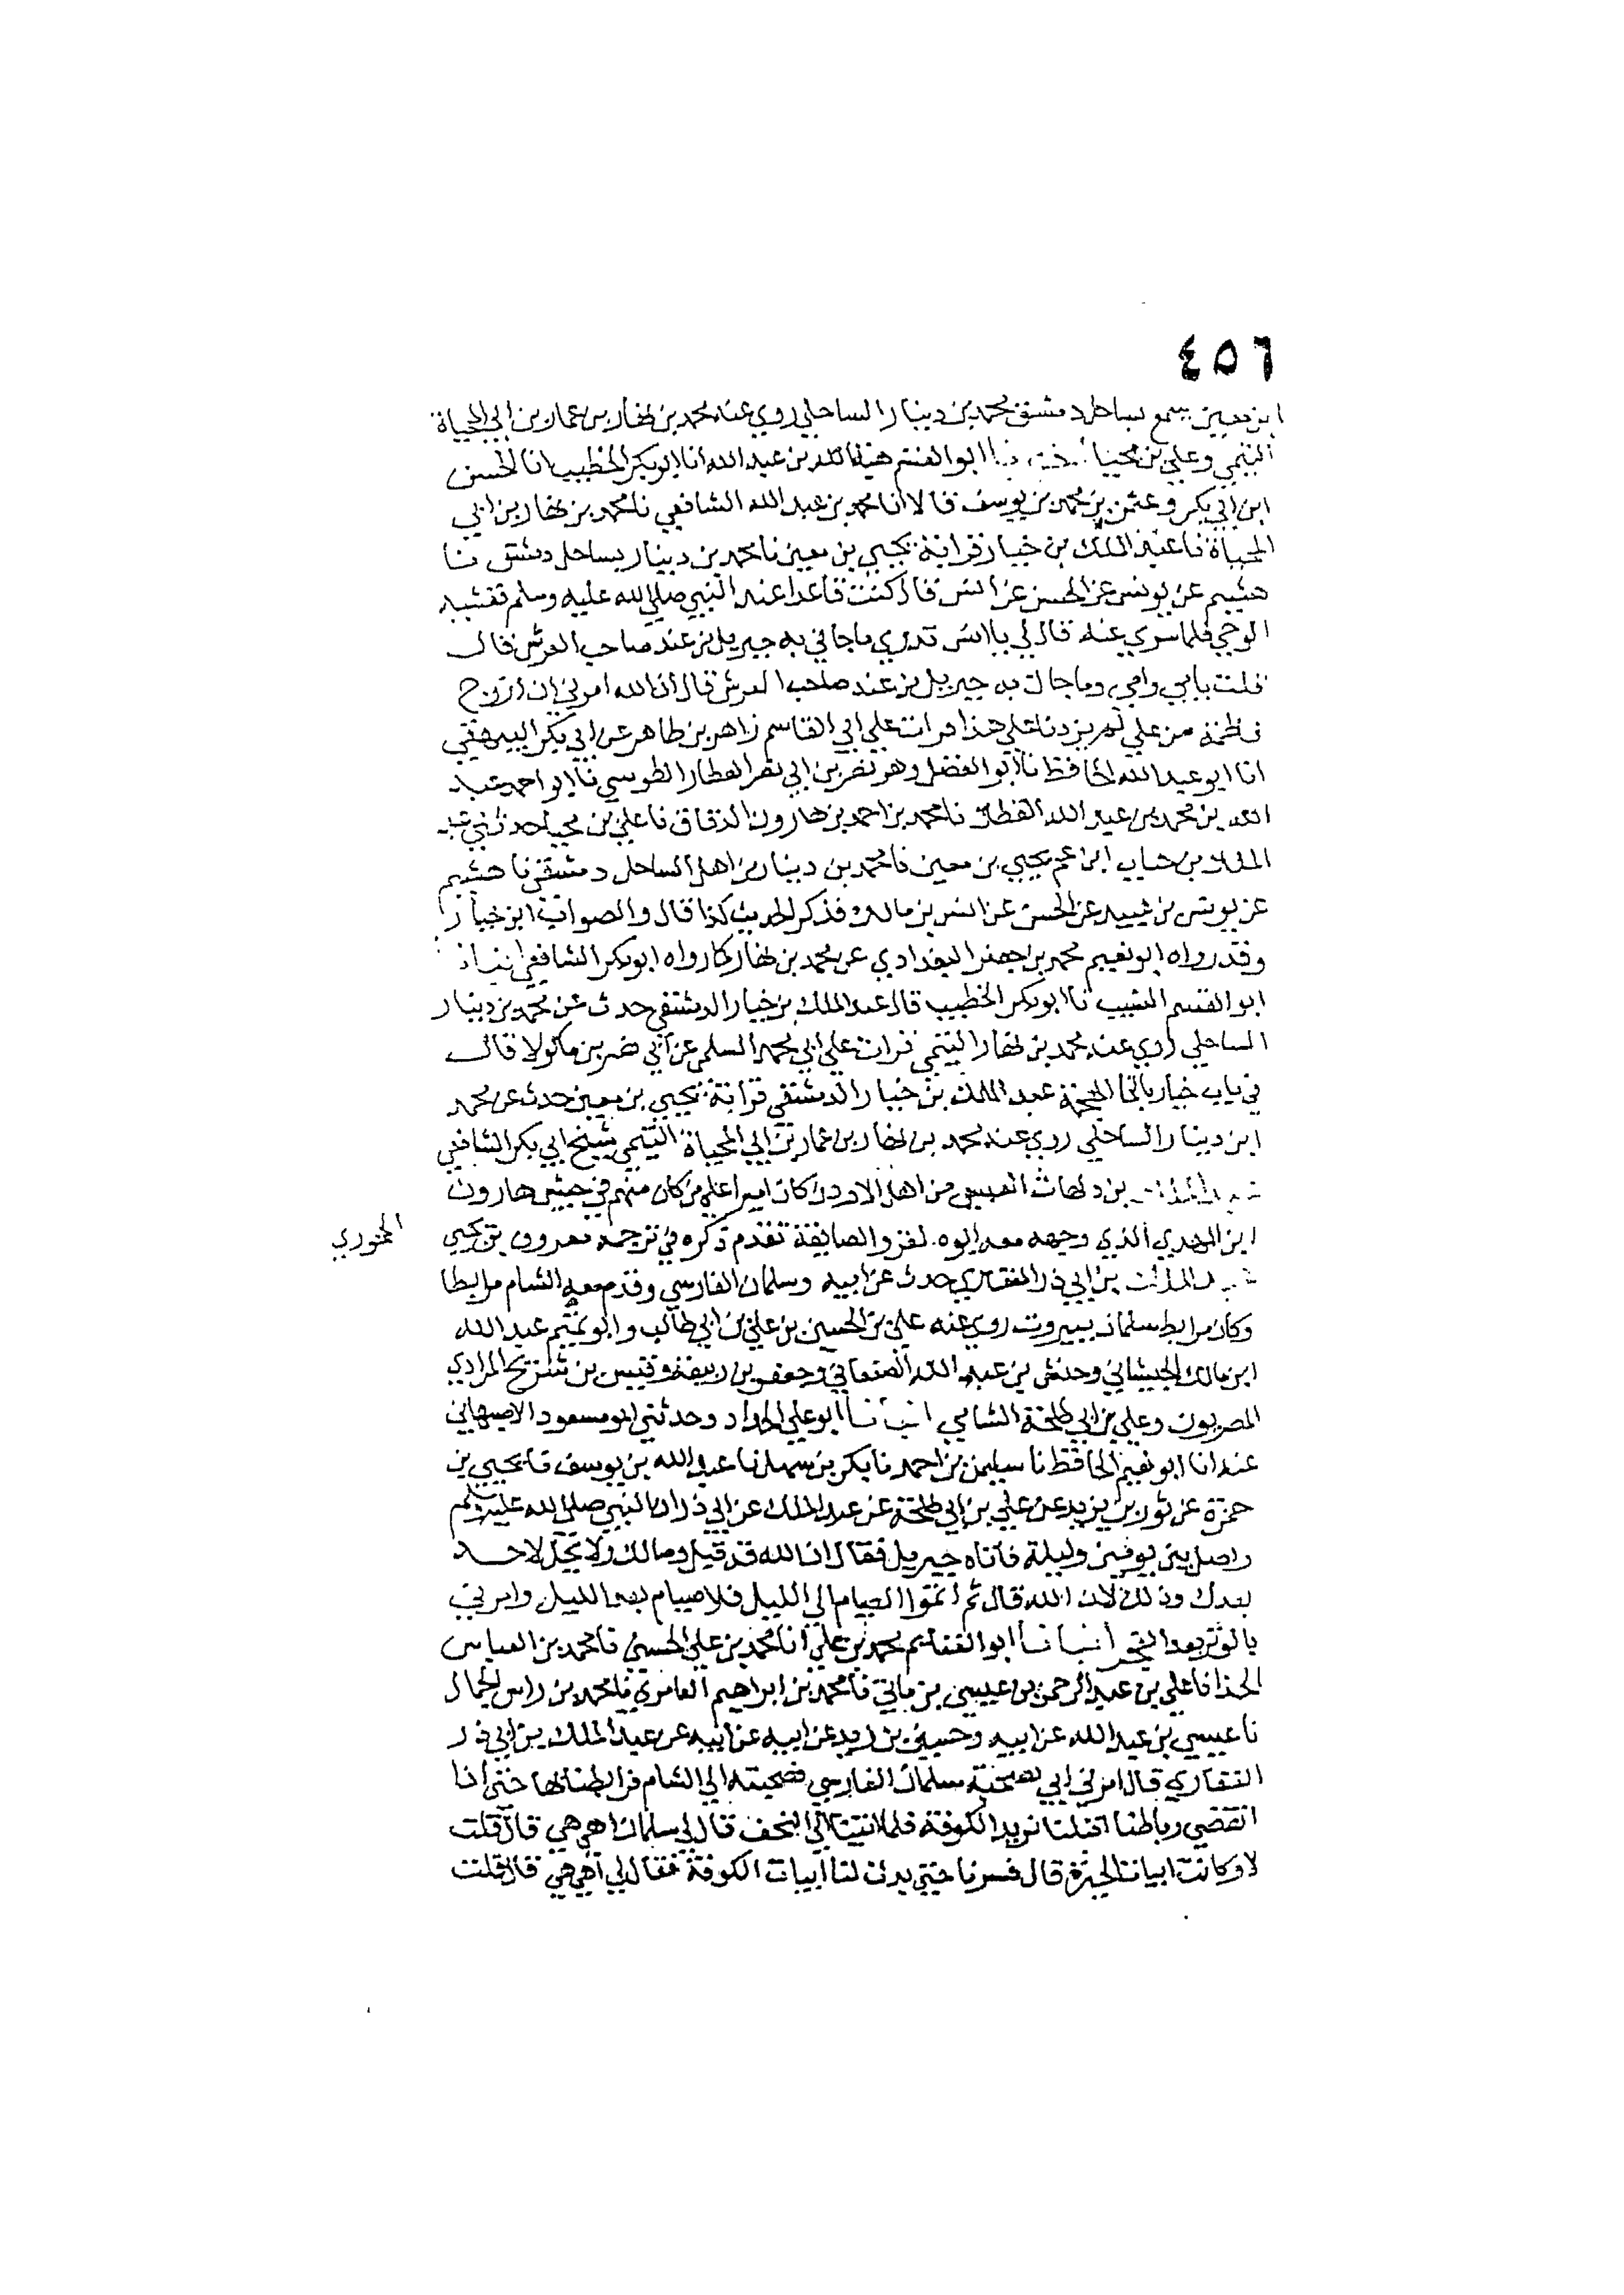 ٤٥٦
ابن معين سمع بساحل دمشق محمد بن دينار الساحلي روى عنه محمد بن نهار بن عمار بن ابي المحياة
التيمي وعلي بن محيا ابو القسم هبة الله بن عبد الله انا ابو بكر الخطيب انا الحسن
ابن ابي بكر وعثمن بن محمد بن يوسف قالا انا محمد بن عبد الله الشافعي نا محمد بن نهار بن ابي
المحياة نا عبد الملك بن خيار قرابة يحيي بن معين نا محمد بن دينار بساحل دمشق نا
هشيم عن يونس عن الحسن عن انس قال كنت قاعدا عند النبي صلى الله عليه وسلم فغشيه
الوحي فلما سري عنه قال لي يا انس تدري ما جاني به جبريل من عند صاحب العرش قال
قلت بابي وامي وما جاك به جبريل من عند صاحب العرش قال ان الله امرني ان ازوج
فاطمة من علي لم يزد نا علي هذا قرات علي ابي القاسم زاهر بن طاهر عن ابي بكر البيهقي
انا ابو عبد الله الحافظ نا ابو الفضل وهو نصر بن ابي نصر العطار الطوسي نا ابو احمد عبد
الله بن محمد بن عبد الله القطان نا محمد بن احمد بن هارون الدقاق نا علي بن محيا حدثني عبد
الملك بن حباب ابن عم يحيي بن معين نا محمد بن دينار من اهل الساحل دمشق نا هشيم
عن يونس بن عبيد عن الحسن عن انس بن مالك فذكر الحديث كذا قال والصواب ابن خيار
وقد رواه ابو نعيم محمد بن جعفر البغدادي عن محمد بن نهار كما رواه ابو بكر الشافعي انبانا
ابو القسم النسيب نا ابو بكر الخطيب قال عبد الملك بن خيار الدمشقي حدث عن محمد بن دينار
الساحلي روى عنه محمد بن نهار التيمي قرات علي ابي محمد السلمي عن ابي نصر بن ماكولا قال
في باب خيار بالخا المعجمة عبد الملك بن خيار الدمشقي قرابة يحيي بن معين حدث عن محمد
ابن دينار الساحلي روى عنه محمد بن نهار بن عمار بن ابي المحياة التيمي شيخ ابي بكر الشافعي
عبد الملك بن دلهاث العبسي من اهل الاردن كان اميرا علي من كان منهم في جيش هارون
ابن المهدي الذي وجهه معه ابوه لغزو الصايفة تقدم ذكره في ترجمة معروف بن يحيي
عبد الملك بن ابي ذر الغفاري حدث عن ابيه وسلمان الفارسي وقدم معه الشام مرابطا
وكان مرابط سلمان ببيروت روى عنه علي بن الحسين بن علي بن ابي طالب وابو تميم عبد الله
ابن مالك الجيشاني وحنش بن عبد الله الصنعاني وجعفر بن ربيعة وقيس بن شريح المرادي
المصريون وعلي بن ابي طلحة الشامي انبانا ابو علي الحداد وحدثني ابو مسعود الاصبهاني
عنه انا ابو نعيم الحافظ نا سليمن بن احمد نا بكر بن سهل نا عبد الله بن يوسف نا يحيي بن
حمزة عن ثور بن يزيد عن علي بن ابي طلحة عن عبد الملك عن ابي ذر ان النبي صلى الله عليه وسلم
واصل بين يومين وليلة فاتاه جبريل فقال ان الله قد قبل وصالك ولا يحل لاحد
بعدك وذلك لان الله قال ثم اتموا الصيام الي الليل فلا صيام بعد الليل وامرني
بالوتر بعد الفجر انبانا ابو الغنايم محمد بن علي انا محمد بن علي الحسني نا محمد بن العباس
الحذا نا علي بن عبد الرحمن بن عيسى بن ماتي نا محمد بن ابراهيم العامري نا محمد بن راس الجمال
نا عيسي بن عبد الله عن ابيه وحسين بن زيد عن ابيه عن ابيه عن عبد الملك بن ابي ذر
الغفاري قال امرني ابي بصحبة سلمان الفارسي فصحبته الي الشام فرابطناها حتي اذا
انقضي رباطنا اقبلنا نريد الكوفة فلما اتينا الي النجف قال لي سلمان اهي هي قال قلت
لا وكانت ابيات الحيرة قال فسرنا حتي بدت لنا ابيات الكوفة فقال لي اهي هي قال قلت